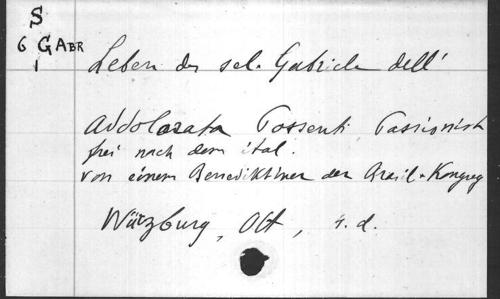 S
6 GABR
1
Leben des sel. Gabriele dell'
Addolorata Possenti Passionist
frei nach dem ital.
von einem Benediktiner der Brasil. Kongreg
Würzburg, Ott, s.d.